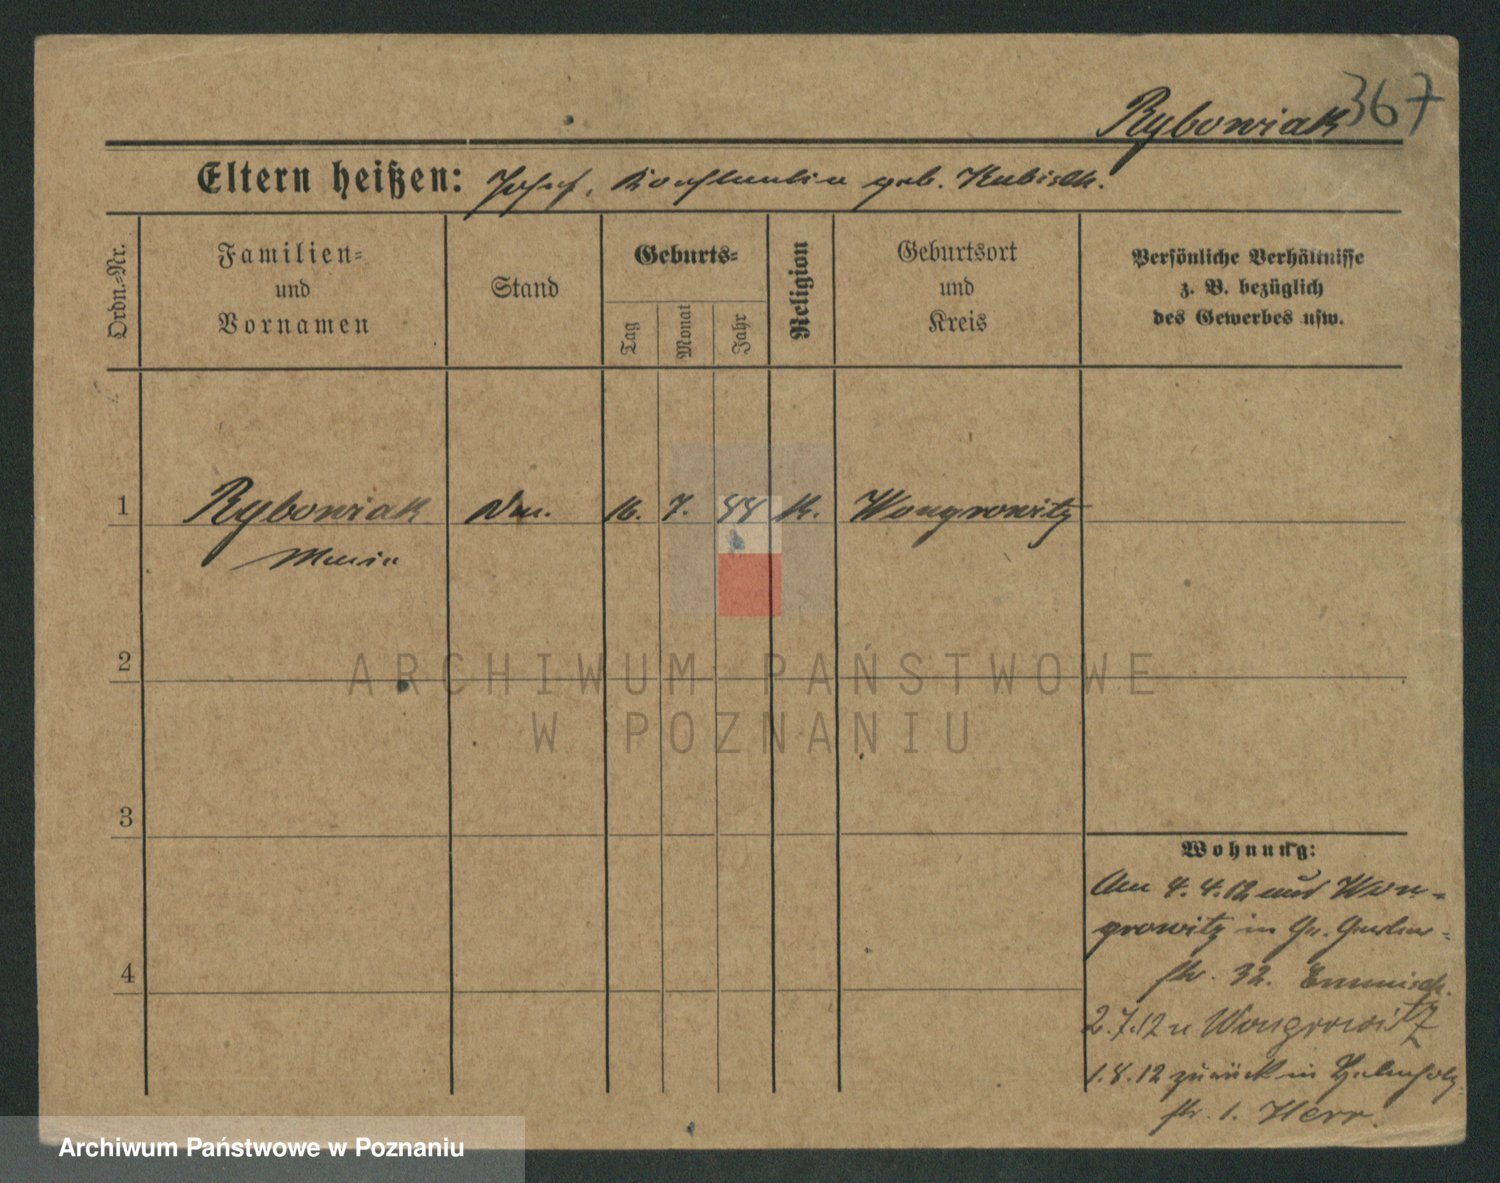 367
Rybowiak
Eltern heißen: Josef, Konstantia geb. Kubisch.
Ordn.-Nr.
Familien-
und
Vornamen
Stand
Geburts-
Tag
Monat
Jahr
Religion
Geburtsort
und
Kreis
Persönliche Verhältnisse
z. B. bezüglich
des Gewerbes usw.
1 Rybowiak 16. 7. 44 K. Wongrowitz
Maria
2
ARCHIWUM PAŃSTWOWE
W POZNANIU
3
4
Wohnung:
Am 4.4.12 aus Won-
growitz in Gr. Gerber-
str. 32.
2.7.12 n Wongrowitz
1.8.12 zurück in
str. 1. Herr.
Archiwum Państwowe w Poznaniu